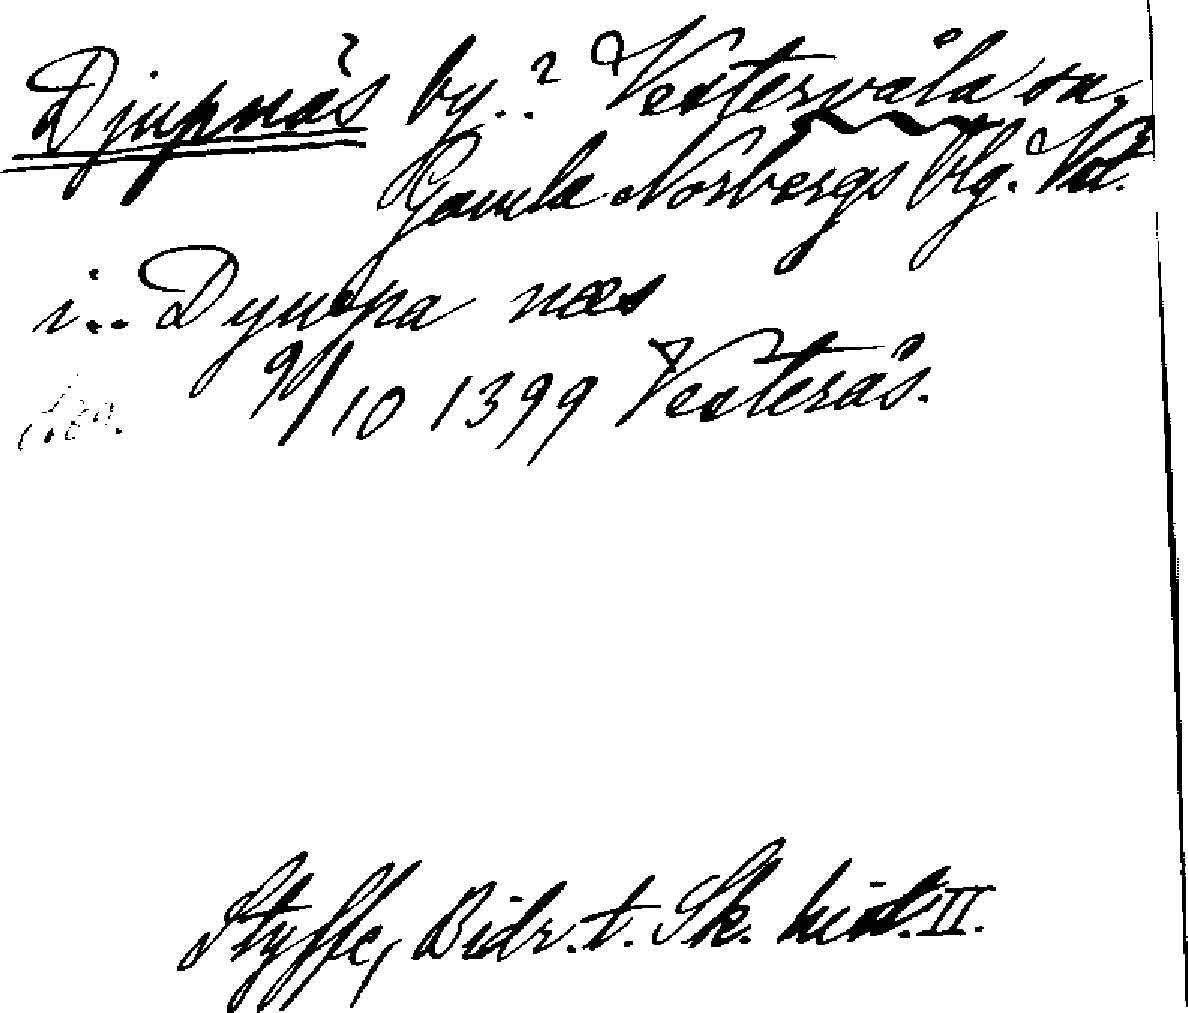 Djupnäs by..? Vestervåla sn,
Gamla Norbergs blg. Vst.
i.. Dyupa næs
9/10 1399 Vesterås.
Styffe, Bidr. t. Sk. hist. II.